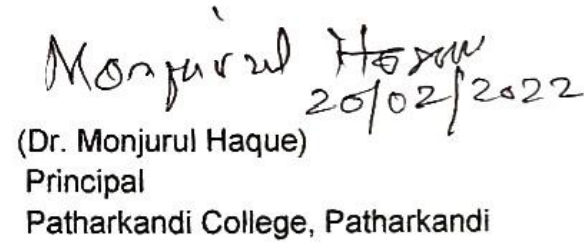 Monjurul Haque
20/02/2022
(Dr. Monjurul Haque)
Principal
Patharkandi College, Patharkandi